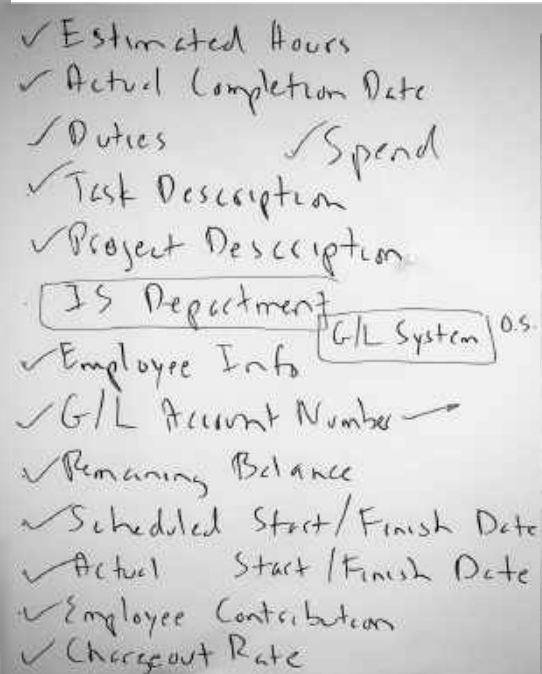 ✓ Estimated Hours
✓ Actual Completion Date
✓ Duties ✓ Spend
✓ Task Description
✓ Project Description
IS Department
G/L System O.S.
✓ Employee Info
✓ G/L Account Number
✓ Remaning Balance
✓ Scheduled Start/Finish Date
✓ Actual Start/Finish Date
✓ Employee Contribution
✓ Chargeout Rate